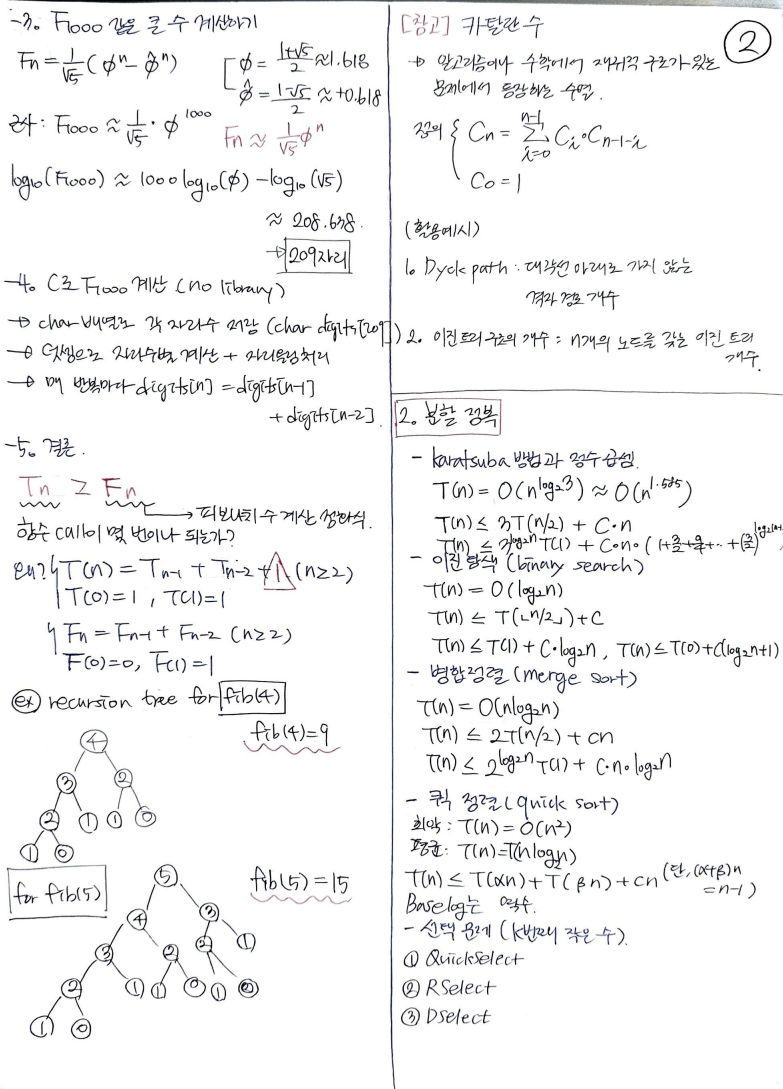 -3. F1000 같은 큰 수 계산하기
Fn = 1/√5 (φⁿ - φ̂ⁿ) [φ = (1+√5)/2 ≈ 1.618
φ̂ = (1-√5)/2 ≈ +0.618
근사: F1000 ≈ 1/√5 · φ¹⁰⁰⁰
Fn ≈ 1/√5 φⁿ
log₁₀(F1000) ≈ 1000 log₁₀(φ) - log₁₀(√5)
≈ 208.638.
→ 209자리
-4. C로 F1000 계산 (no library)
→ char 배열로 각 자리수 저장 (char digits[209])
→ 덧셈으로 자리수별 계산 + 자리올림처리
→ 매 반복마다 digits[n] = digits[n-1]
+ digits[n-2].
-5. 결론.
Tn ≥ Fn
→ 피보나치 수 계산 점화식.
함수 call이 몇 번이나 되는가?
왜? { T(n) = Tn-1 + Tn-2 + 1 (n≥2)
T(0)=1, T(1)=1
{ Fn = Fn-1 + Fn-2 (n≥2)
F(0)=0, F(1)=1
ex) recursion tree for fib(4)
fib(4)=9
4
3 2
2 1 1 0
1 0
for fib(5)
fib(5)=15
5
4 3
3 2 2 1
2 1 1 0 1 0
1 0
2
[참고] 카탈란 수
→ 알고리즘이나 수학에서 재귀적 구조가 있는
문제에서 등장하는 수열.
정의 { Cn = Σ(i=0, n-1) Ci · Cn-1-i
C0 = 1
(활용예시)
1. Dyck path : 대각선 아래로 가지 않는
격자 경로 개수
2. 이진트리 구조의 개수 : n개의 노드를 갖는 이진 트리
개수.
2. 분할 정복
- karatsuba 방법과 정수 곱셈.
T(n) = O(n^log₂3) ≈ O(n^1.585)
T(n) ≤ 3T(n/2) + C·n
T(n) ≤ 3^log₂n T(1) + C·n·(1+3/2+9/4+··+(3/2)
- 이진 탐색 (binary search)
T(n) = O(log₂n)
T(n) ≤ T(⌊n/2⌋)+C
T(n) ≤ T(1) + C·log₂n, T(n) ≤ T(0)+C(log₂n+1)
- 병합정렬 (merge sort)
T(n) = O(nlog₂n)
T(n) ≤ 2T(n/2) + cn
T(n) ≤ 2^log₂n T(1) + C·n·log₂n
- 퀵 정렬 (quick sort)
최악 : T(n) = O(n²)
평균 : T(n)=T(nlog₂n)
T(n) ≤ T(αn) + T(βn) + cn (단, (α+β)n
= n-1)
Baselog는 역수.
- 선택 문제 (k번째 작은 수).
① QuickSelect
② RSelect
③ DSelect